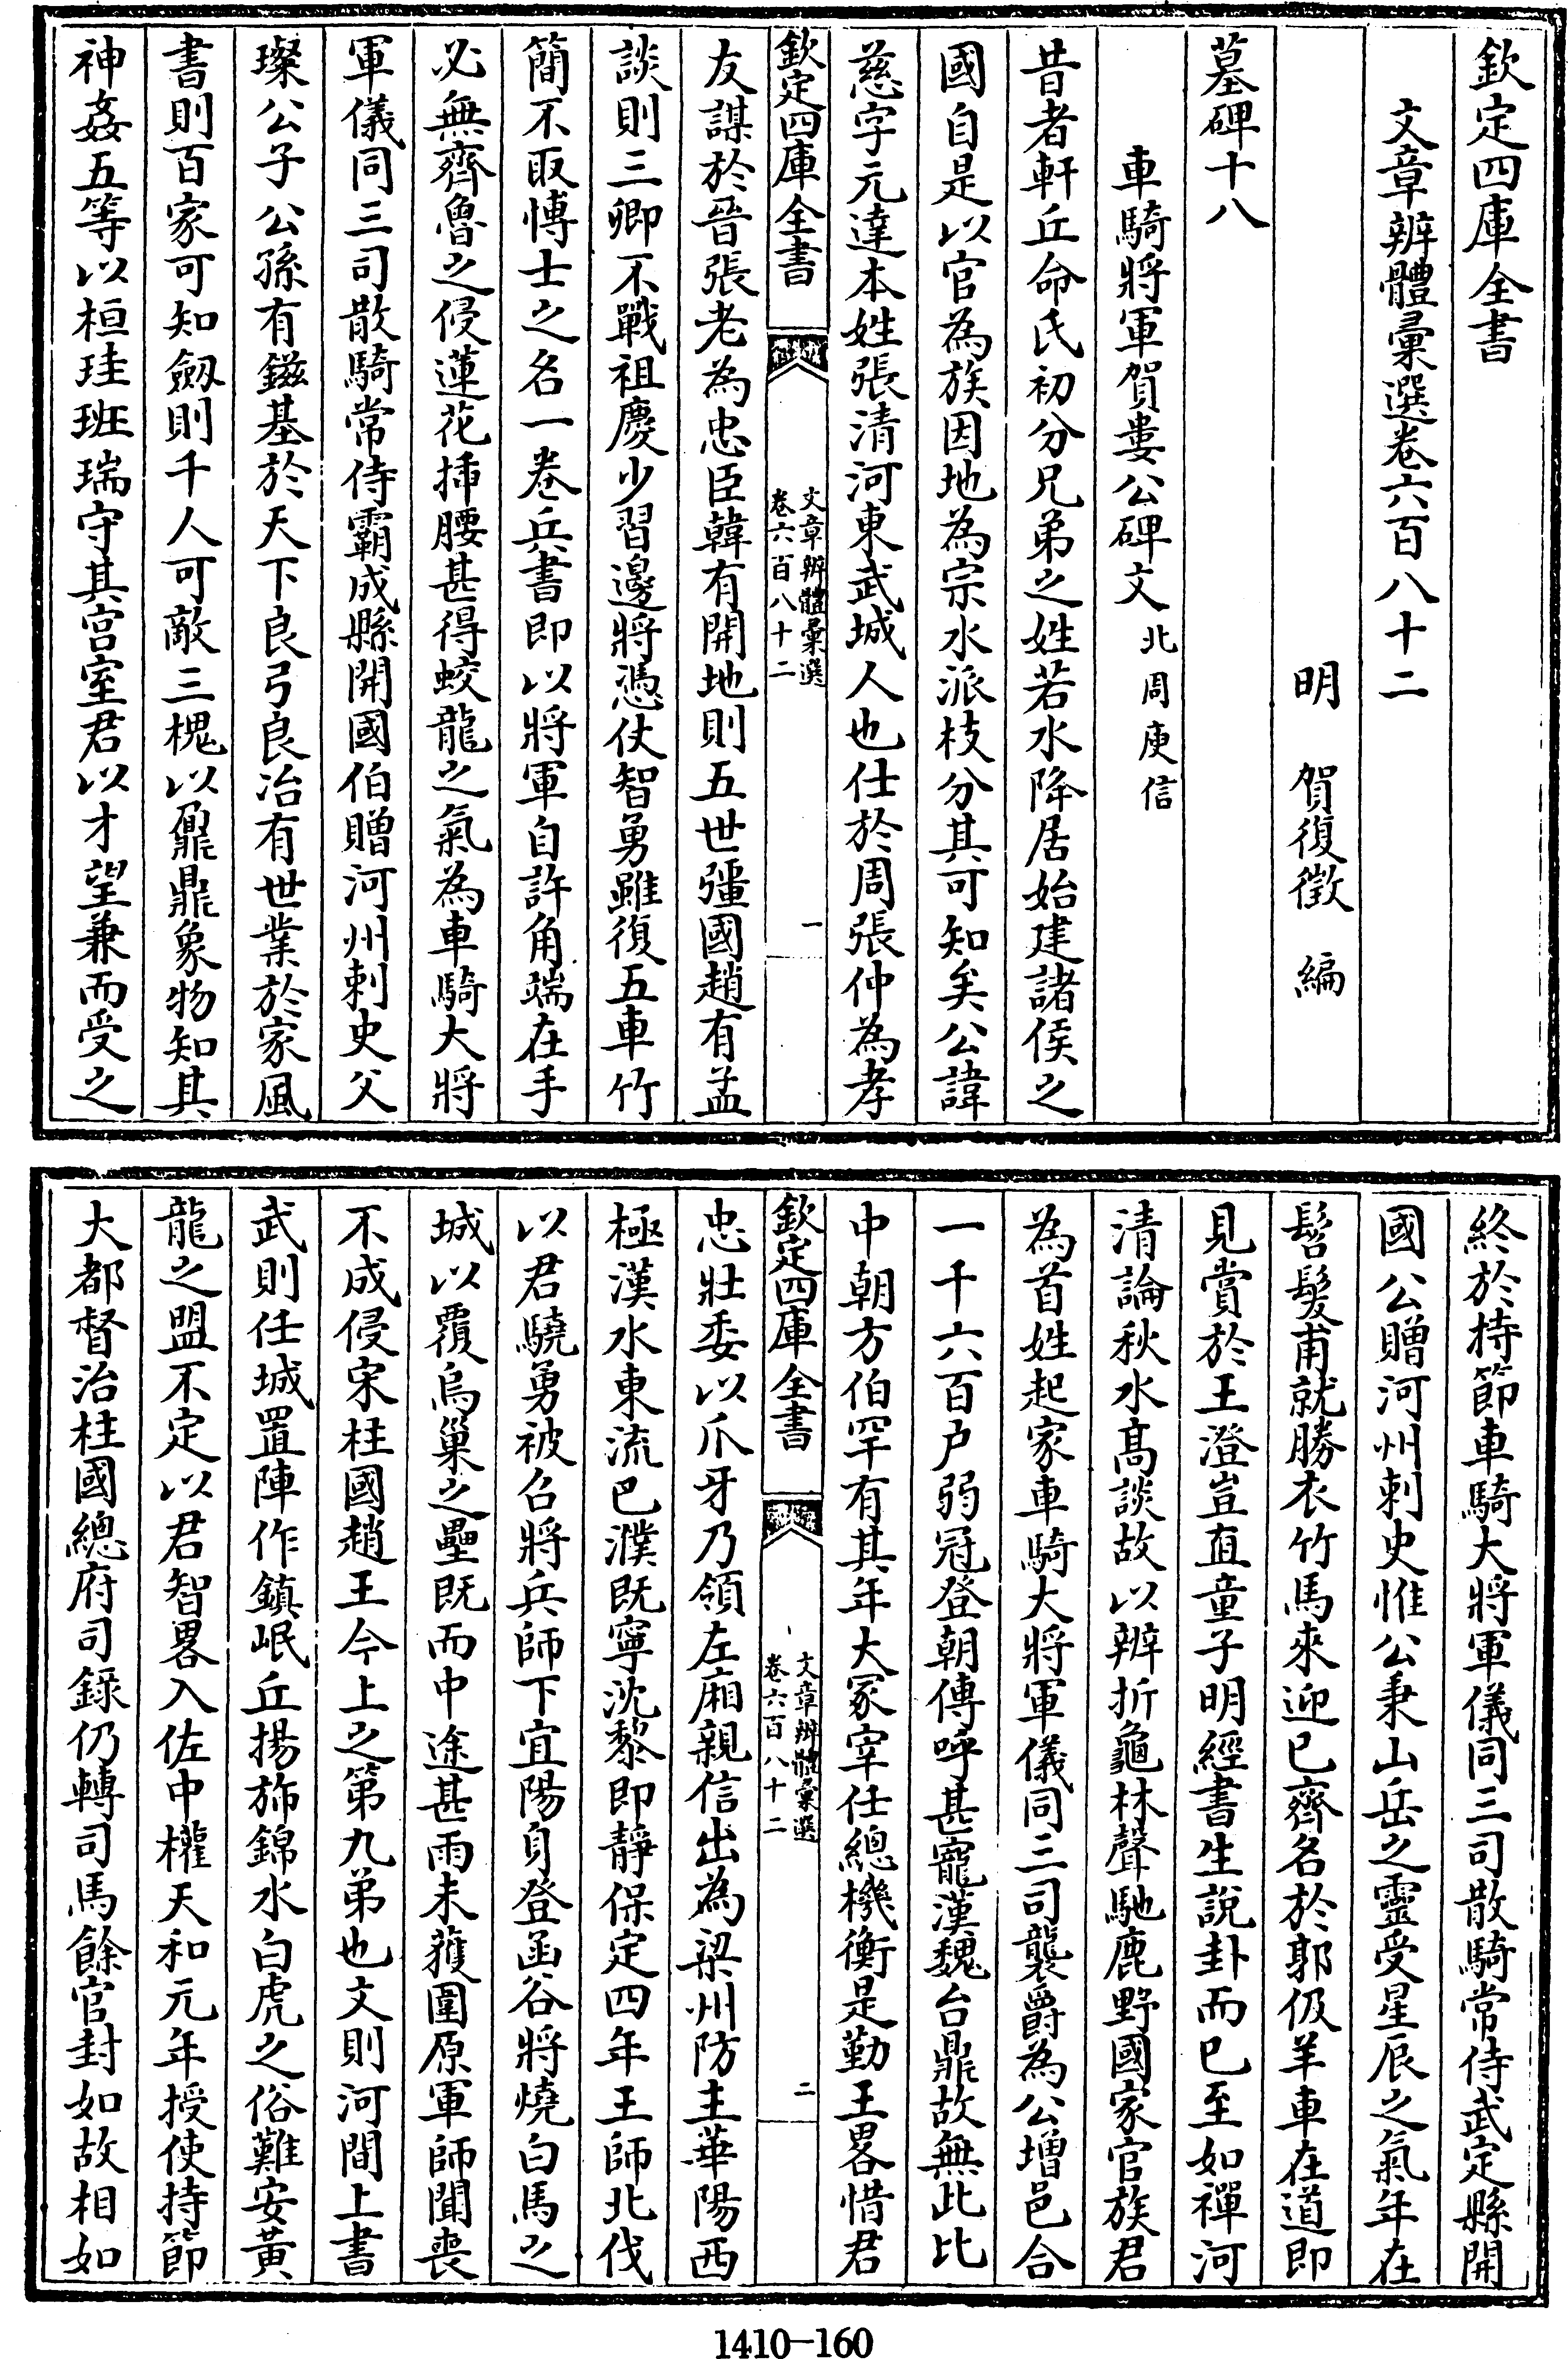 欽定四庫全書
文章辨體彙選卷六百八十二
明 賀復徵 編
墓碑十八
車騎將軍賀婁公碑文 北周庾信
昔者軒丘命氏初分兄弟之姓若水降居始建諸侯之
國自是以官為族因地為宗水派枝分其可知矣公諱
慈字元達本姓張清河東武城人也仕於周張仲為孝
欽定四庫全書
文章辨體彙選
卷六百八十二
一
友謀於晉張老為忠臣韓有開地則五世彊國趙有孟
談則三卿不戰祖慶少習邊將憑仗智勇雖復五車竹
簡不取博士之名一卷兵書即以將軍自許角端在手
必無齊魯之侵蓮花揷腰甚得蛟龍之氣為車騎大將
軍儀同三司散騎常侍霸成縣開國伯贈河州刺史父
璨公子公孫有鎡基於天下良弓良冶有世業於家風
書則百家可知劔則千人可敵三槐以鼐鼎象物知其
神姦五等以桓珪班瑞守其宫室君以才望兼而受之
終於持節車騎大將軍儀同三司散騎常侍武定縣開
國公贈河州刺史惟公秉山岳之靈受星辰之氣年在
髫髮甫就勝衣竹馬來迎已齊名於郭伋羊車在道即
見賞於王澄豈直童子明經書生說卦而已至如禪河
清論秋水髙談故以辨折龜林聲馳鹿野國家官族君
為首姓起家車騎大將軍儀同三司襲爵為公增邑合
一千六百户弱冠登朝傳呼甚寵漢魏台鼎故無此比
中朝方伯罕有其年大冢宰任總機衡是勤王畧惜君
欽定四庫全書
文章辨體彙選
卷六百八十二
二
忠壯委以爪牙乃領左廂親信出為梁州防主華陽西
極漢水東流巴濮既寧沈黎即靜保定四年王師北伐
以君驍勇被召將兵師下宜陽身登函谷將燒白馬之
城以覆烏巢之壘既而中途甚雨未獲圍原軍師聞喪
不成侵宋柱國趙王今上之第九弟也文則河間上書
武則任城置陣作鎮岷丘揚斾錦水白虎之俗難安黄
龍之盟不定以君智畧入佐中權天和元年授使持節
大都督治柱國總府司錄仍轉司馬餘官封如故相如
1410-160